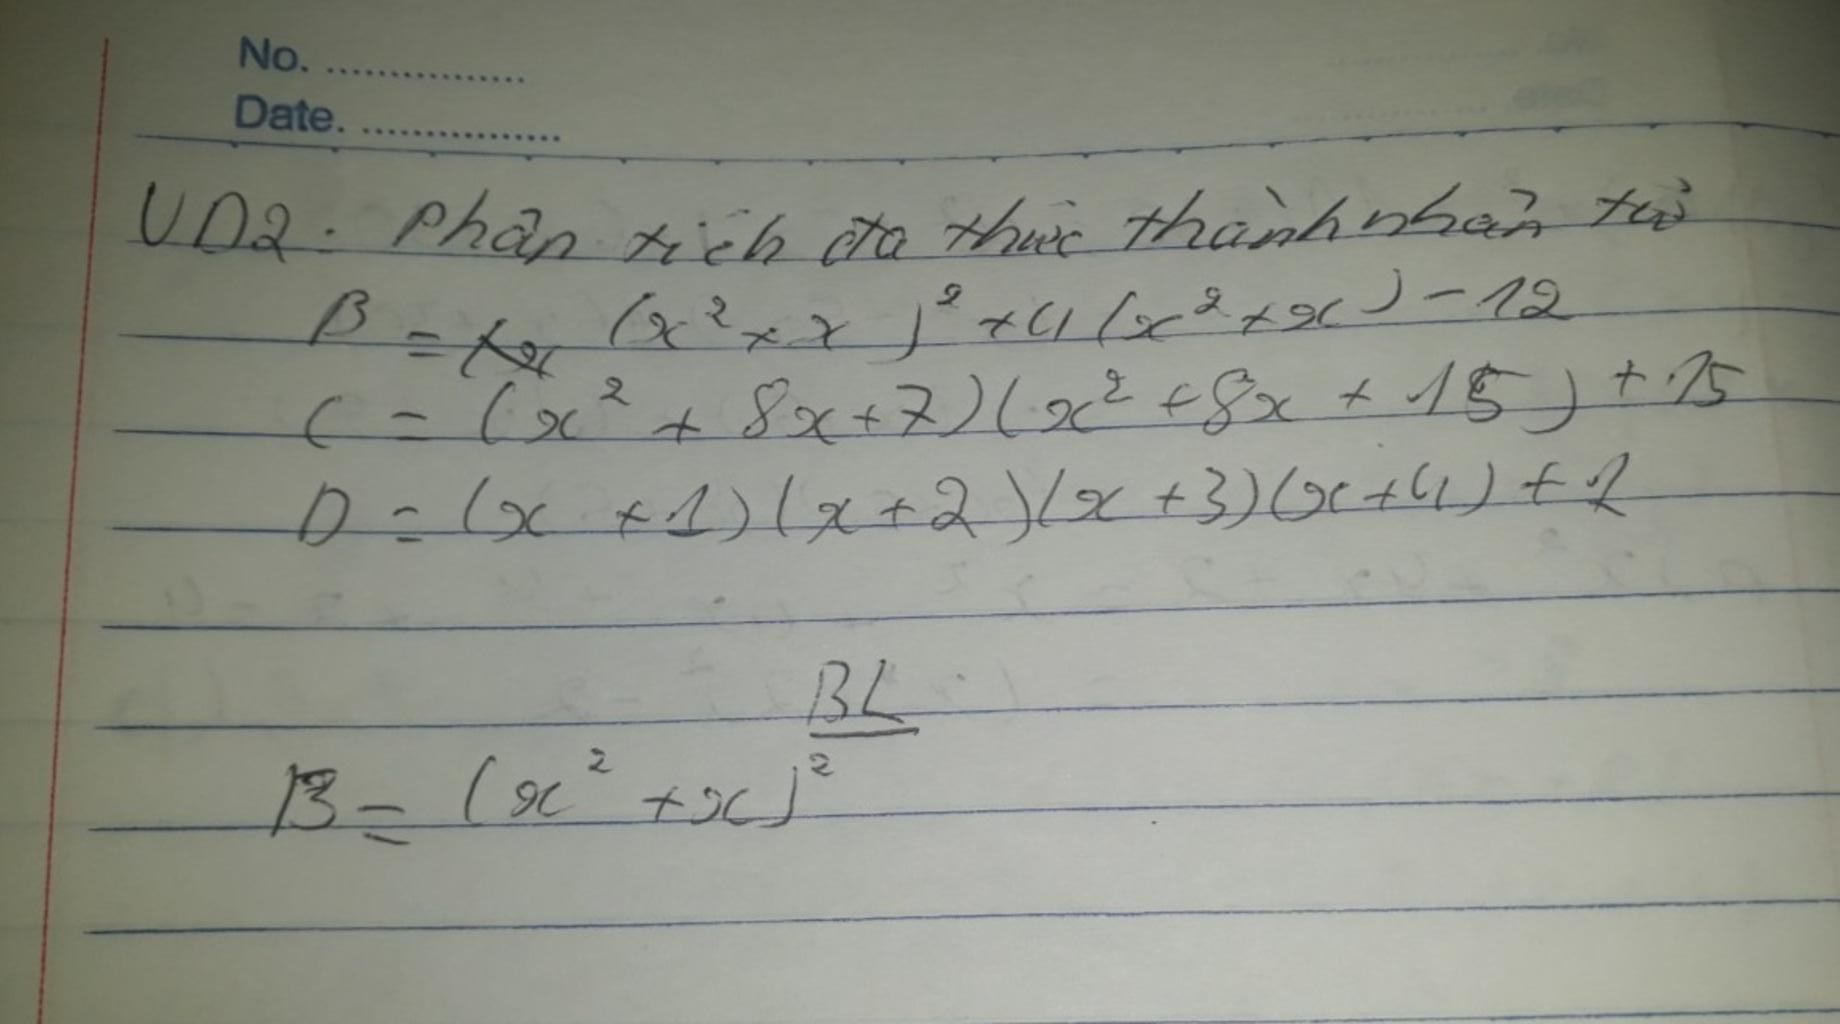 No. ...............
Date. ...............
VD2: Phân tích đa thức thành nhân tử
B = (x² + x)² + 4(x² + x) - 12
C = (x² + 8x + 7)(x² + 8x + 15) + 15
D = (x + 1)(x + 2)(x + 3)(x + 4) + 1
BL
B = (x² + x)²